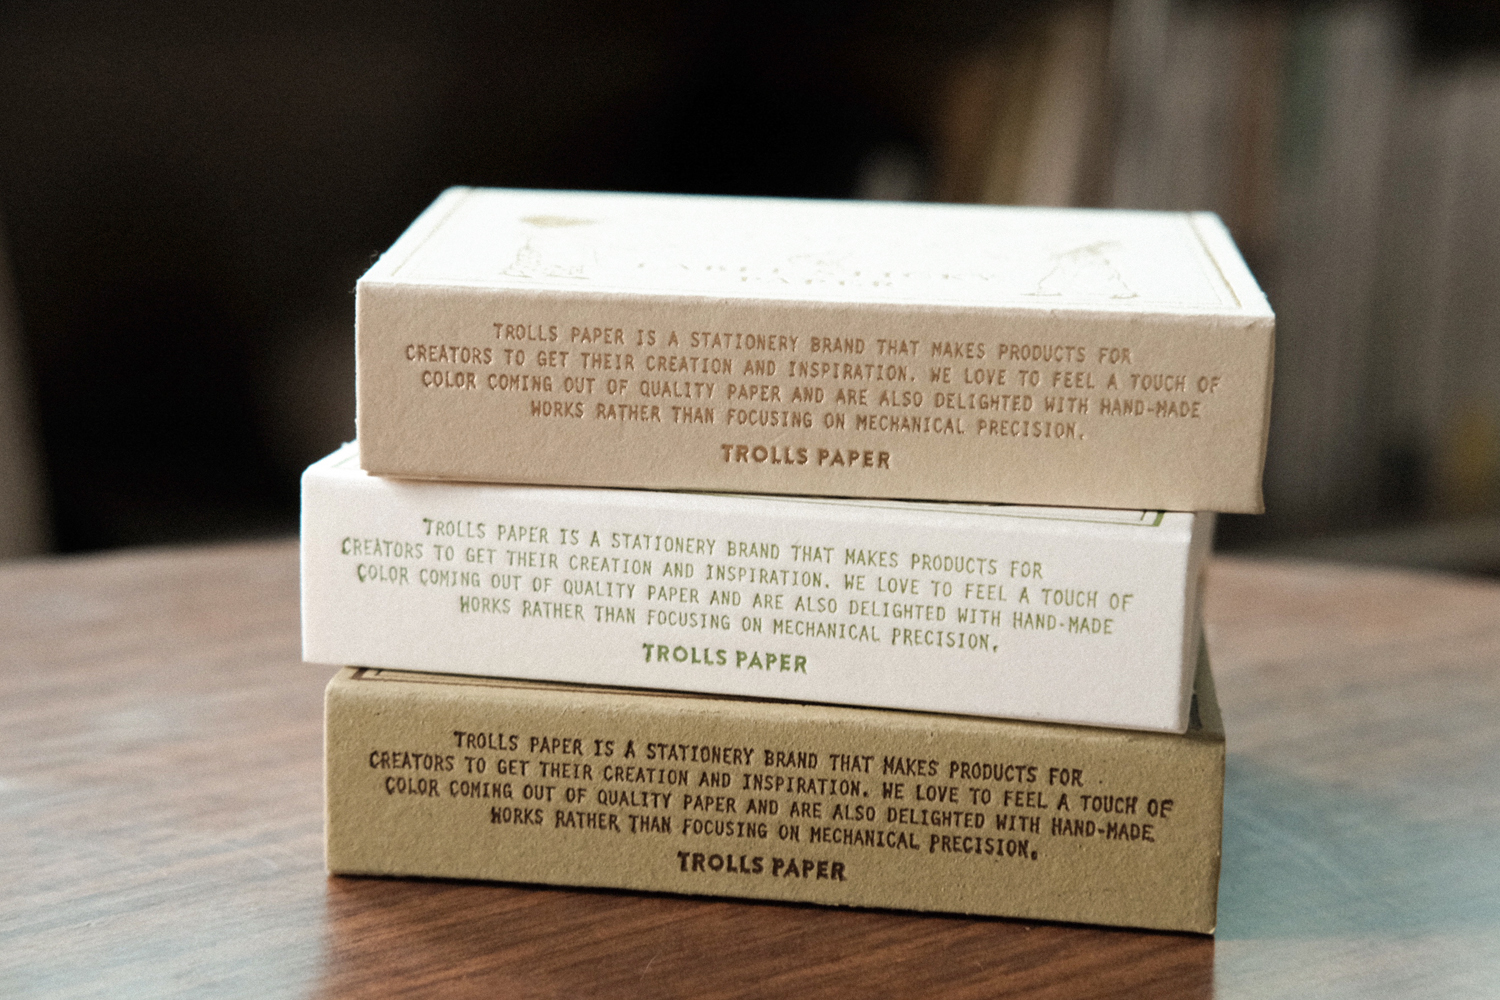 PAPER
TROLLS PAPER IS A STATIONERY BRAND THAT MAKES PRODUCTS FOR
CREATORS TO GET THEIR CREATION AND INSPIRATION. WE LOVE TO FEEL A TOUCH OF
COLOR COMING OUT OF QUALITY PAPER AND ARE ALSO DELIGHTED WITH HAND-MADE
WORKS RATHER THAN FOCUSING ON MECHANICAL PRECISION.
TROLLS PAPER
TROLLS PAPER IS A STATIONERY BRAND THAT MAKES PRODUCTS FOR
CREATORS TO GET THEIR CREATION AND INSPIRATION. WE LOVE TO FEEL A TOUCH OF
COLOR COMING OUT OF QUALITY PAPER AND ARE ALSO DELIGHTED WITH HAND-MADE
WORKS RATHER THAN FOCUSING ON MECHANICAL PRECISION.
TROLLS PAPER
TROLLS PAPER IS A STATIONERY BRAND THAT MAKES PRODUCTS FOR
CREATORS TO GET THEIR CREATION AND INSPIRATION. WE LOVE TO FEEL A TOUCH OF
COLOR COMING OUT OF QUALITY PAPER AND ARE ALSO DELIGHTED WITH HAND-MADE
WORKS RATHER THAN FOCUSING ON MECHANICAL PRECISION.
TROLLS PAPER